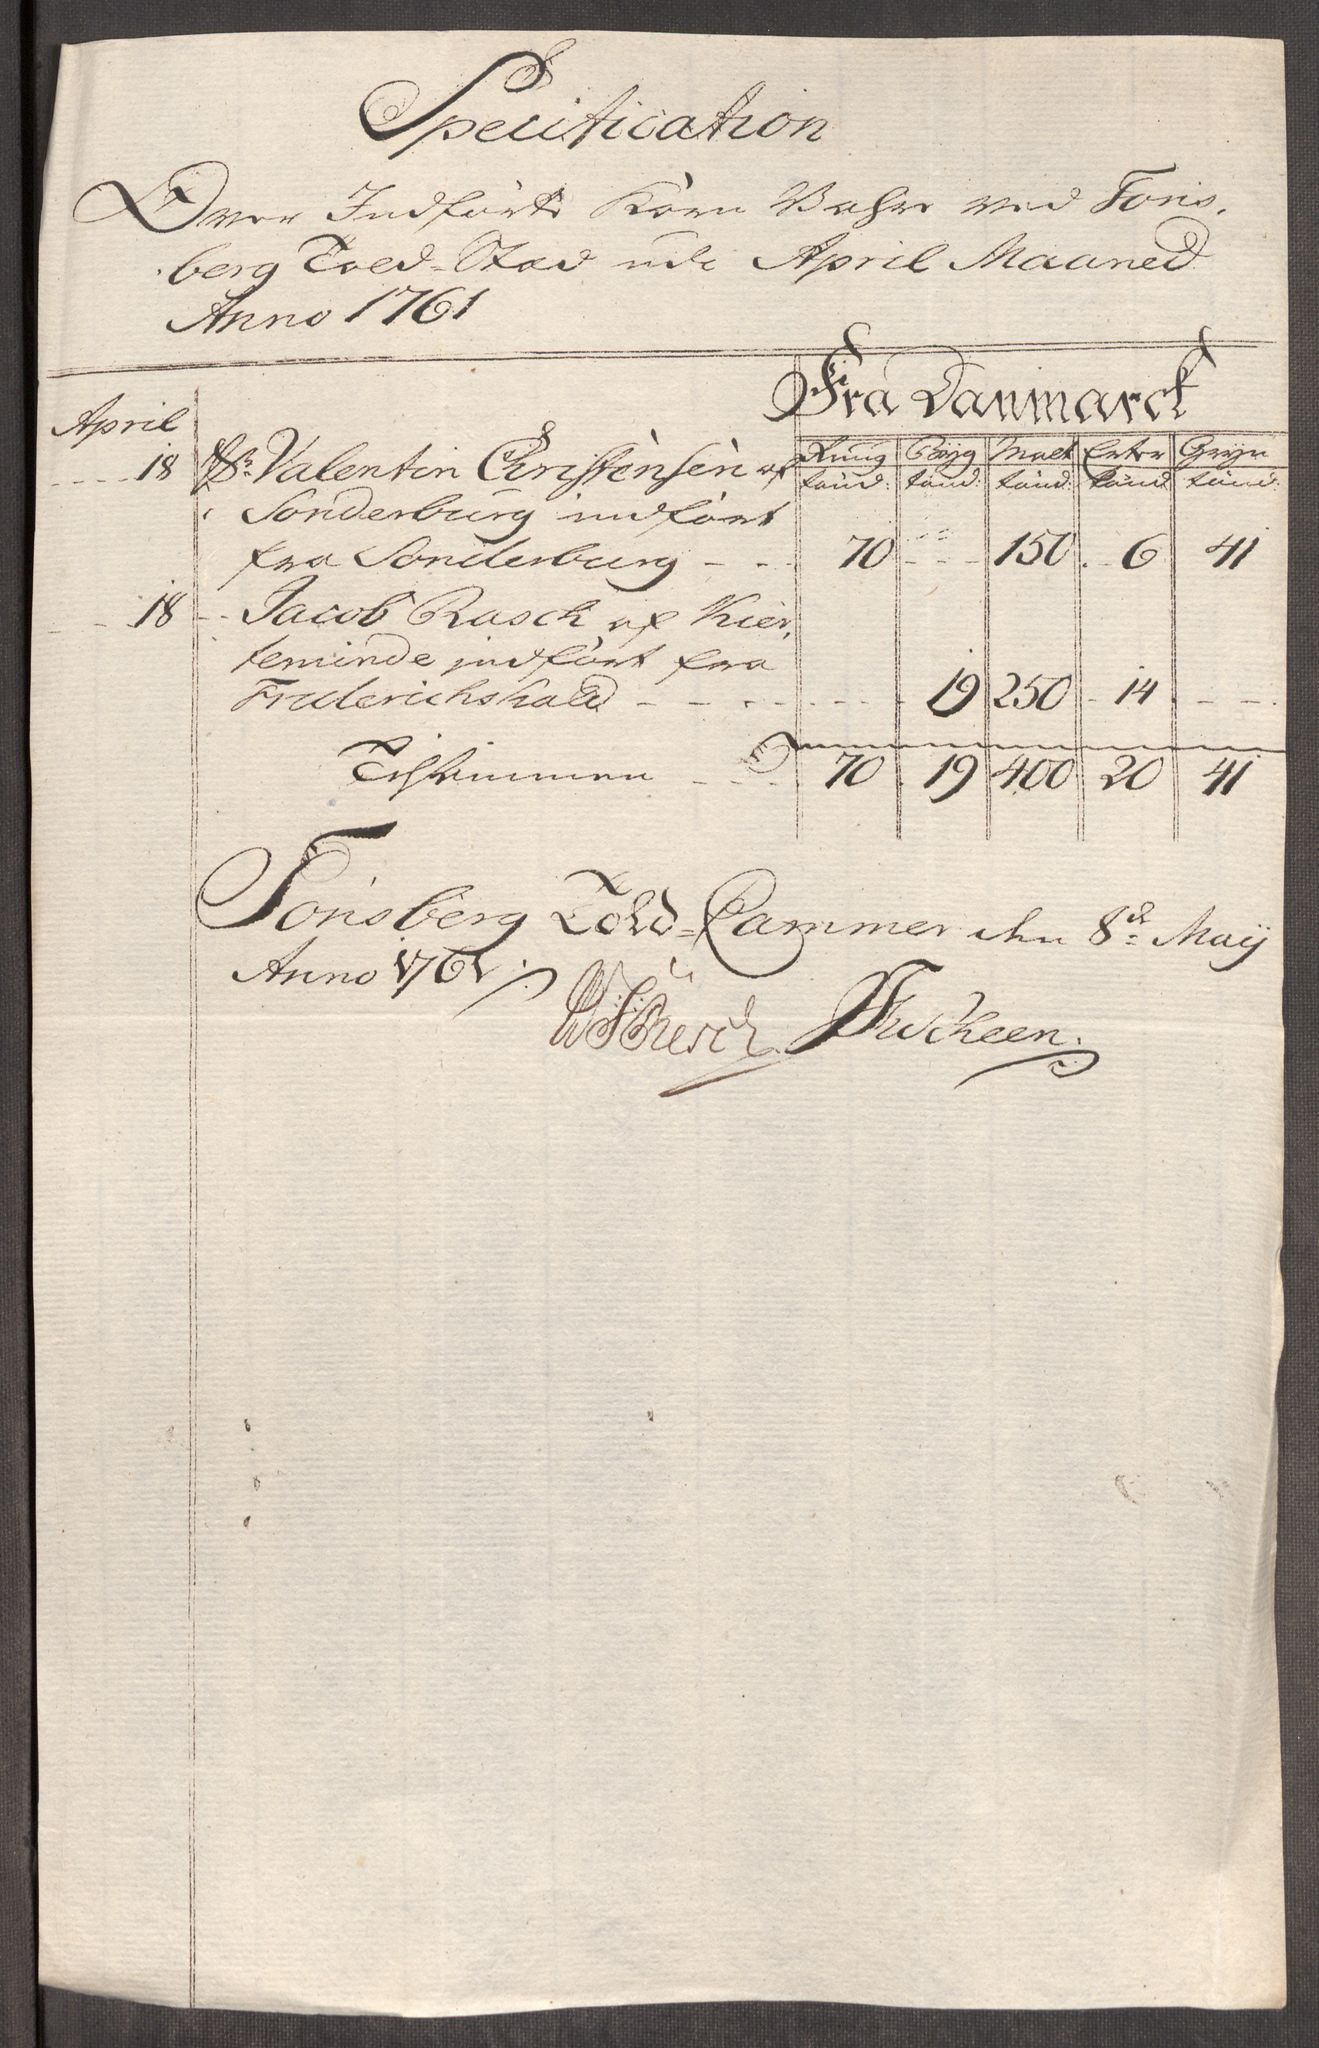 Specification
Over Indförte Korn Vahre ved Tons,
berg Told-Stad udi April Maaned
Anno 1761
Fra Danmarck
April
Rung Böyg Malt Erter Gryn
tönd: tönd: tönd: tönd tönd:
18 Sr: Valentin Christensen af
Sonderburg indfört
fra Sonderburg - - - 70 - - - 150 . - 6 41
18 - - Jacob Rasch af Kier,
teminde indfört fra
Friderichshald - - - - - - - 19 250 - 14 - - -
Tilsammen - - - 70 . 19 400 20 41
Tonsberg Told-Cammer den 8de: Maij
Anno 1761.